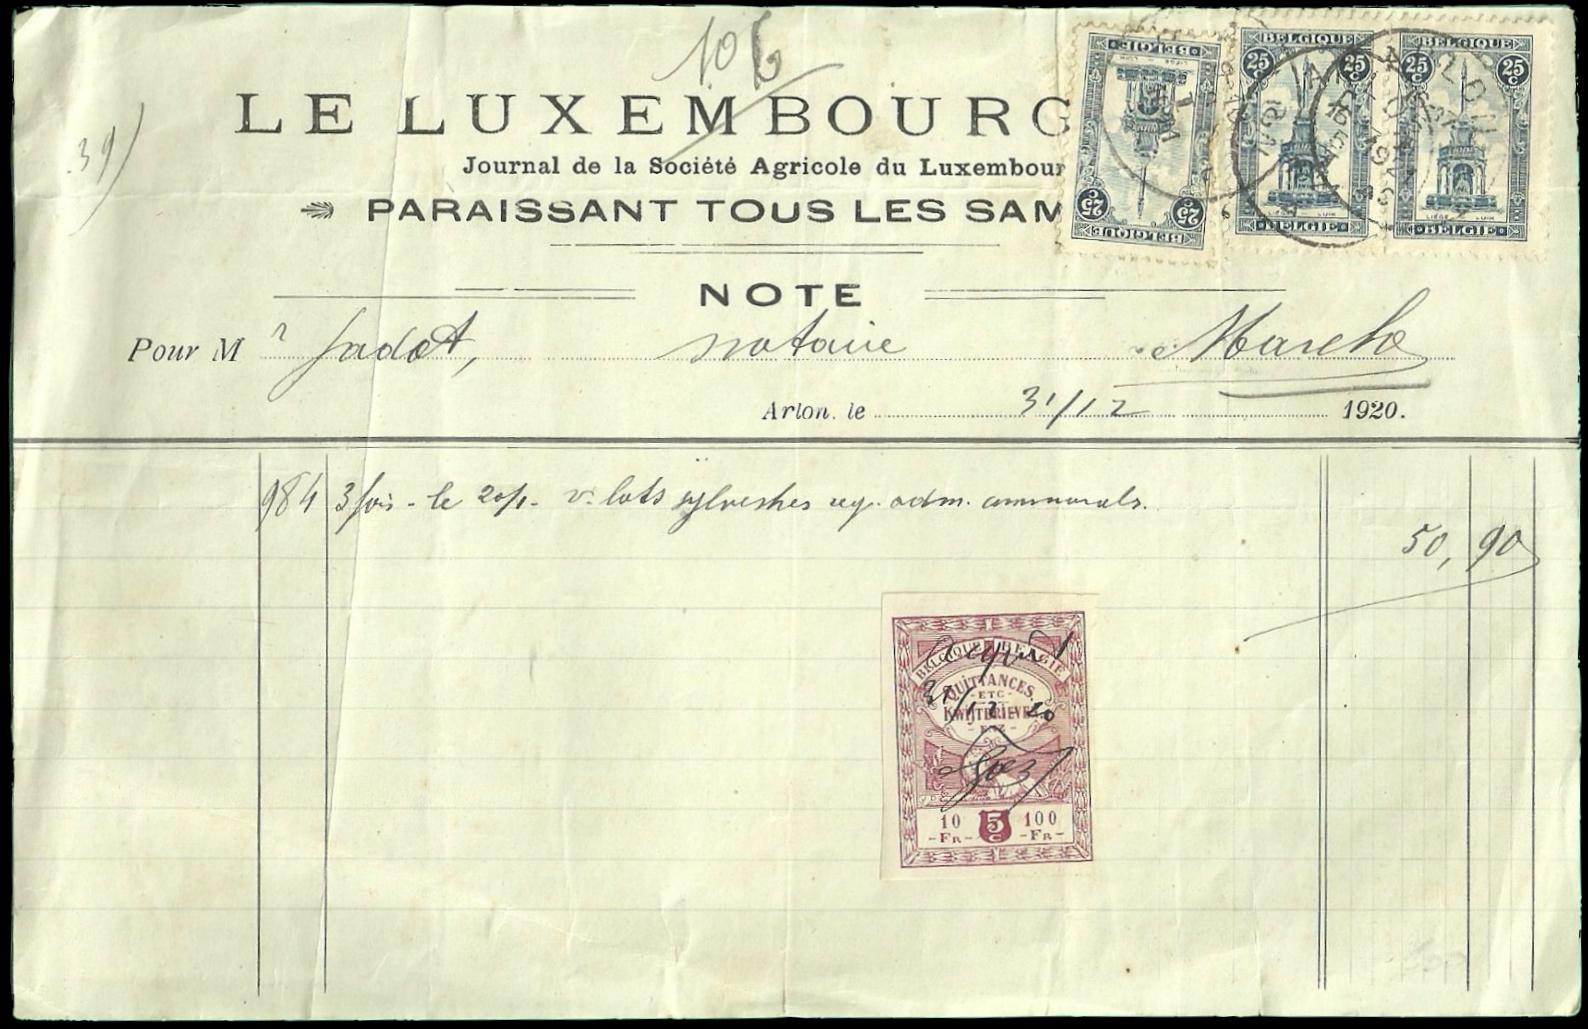 106
LE LUXEMBOURG
Journal de la Société Agricole du Luxembour
39)
PARAISSANT TOUS LES SAM
BELGIQUE
25 C
25 C
BELGIË
BELGIQUE
25 C
25 C
LIÉGE LUIK
BELGIË
BELGIQUE
25 C
25 C
LIÉGE LUIK
BELGIË
ARLON
NOTE
Pour M r Jadot, notaire Marche
Arlon, le 31/12 1920.
984 3 fois - le 20/1 - v. lots sylvestres adm. communales.
50,90
BELGIQUE BELGIË
Acquit
QUITTANCES
ETC
31/12 20
KWIJTBRIEVEN
ENZ
10 Fr 5 C 100 Fr